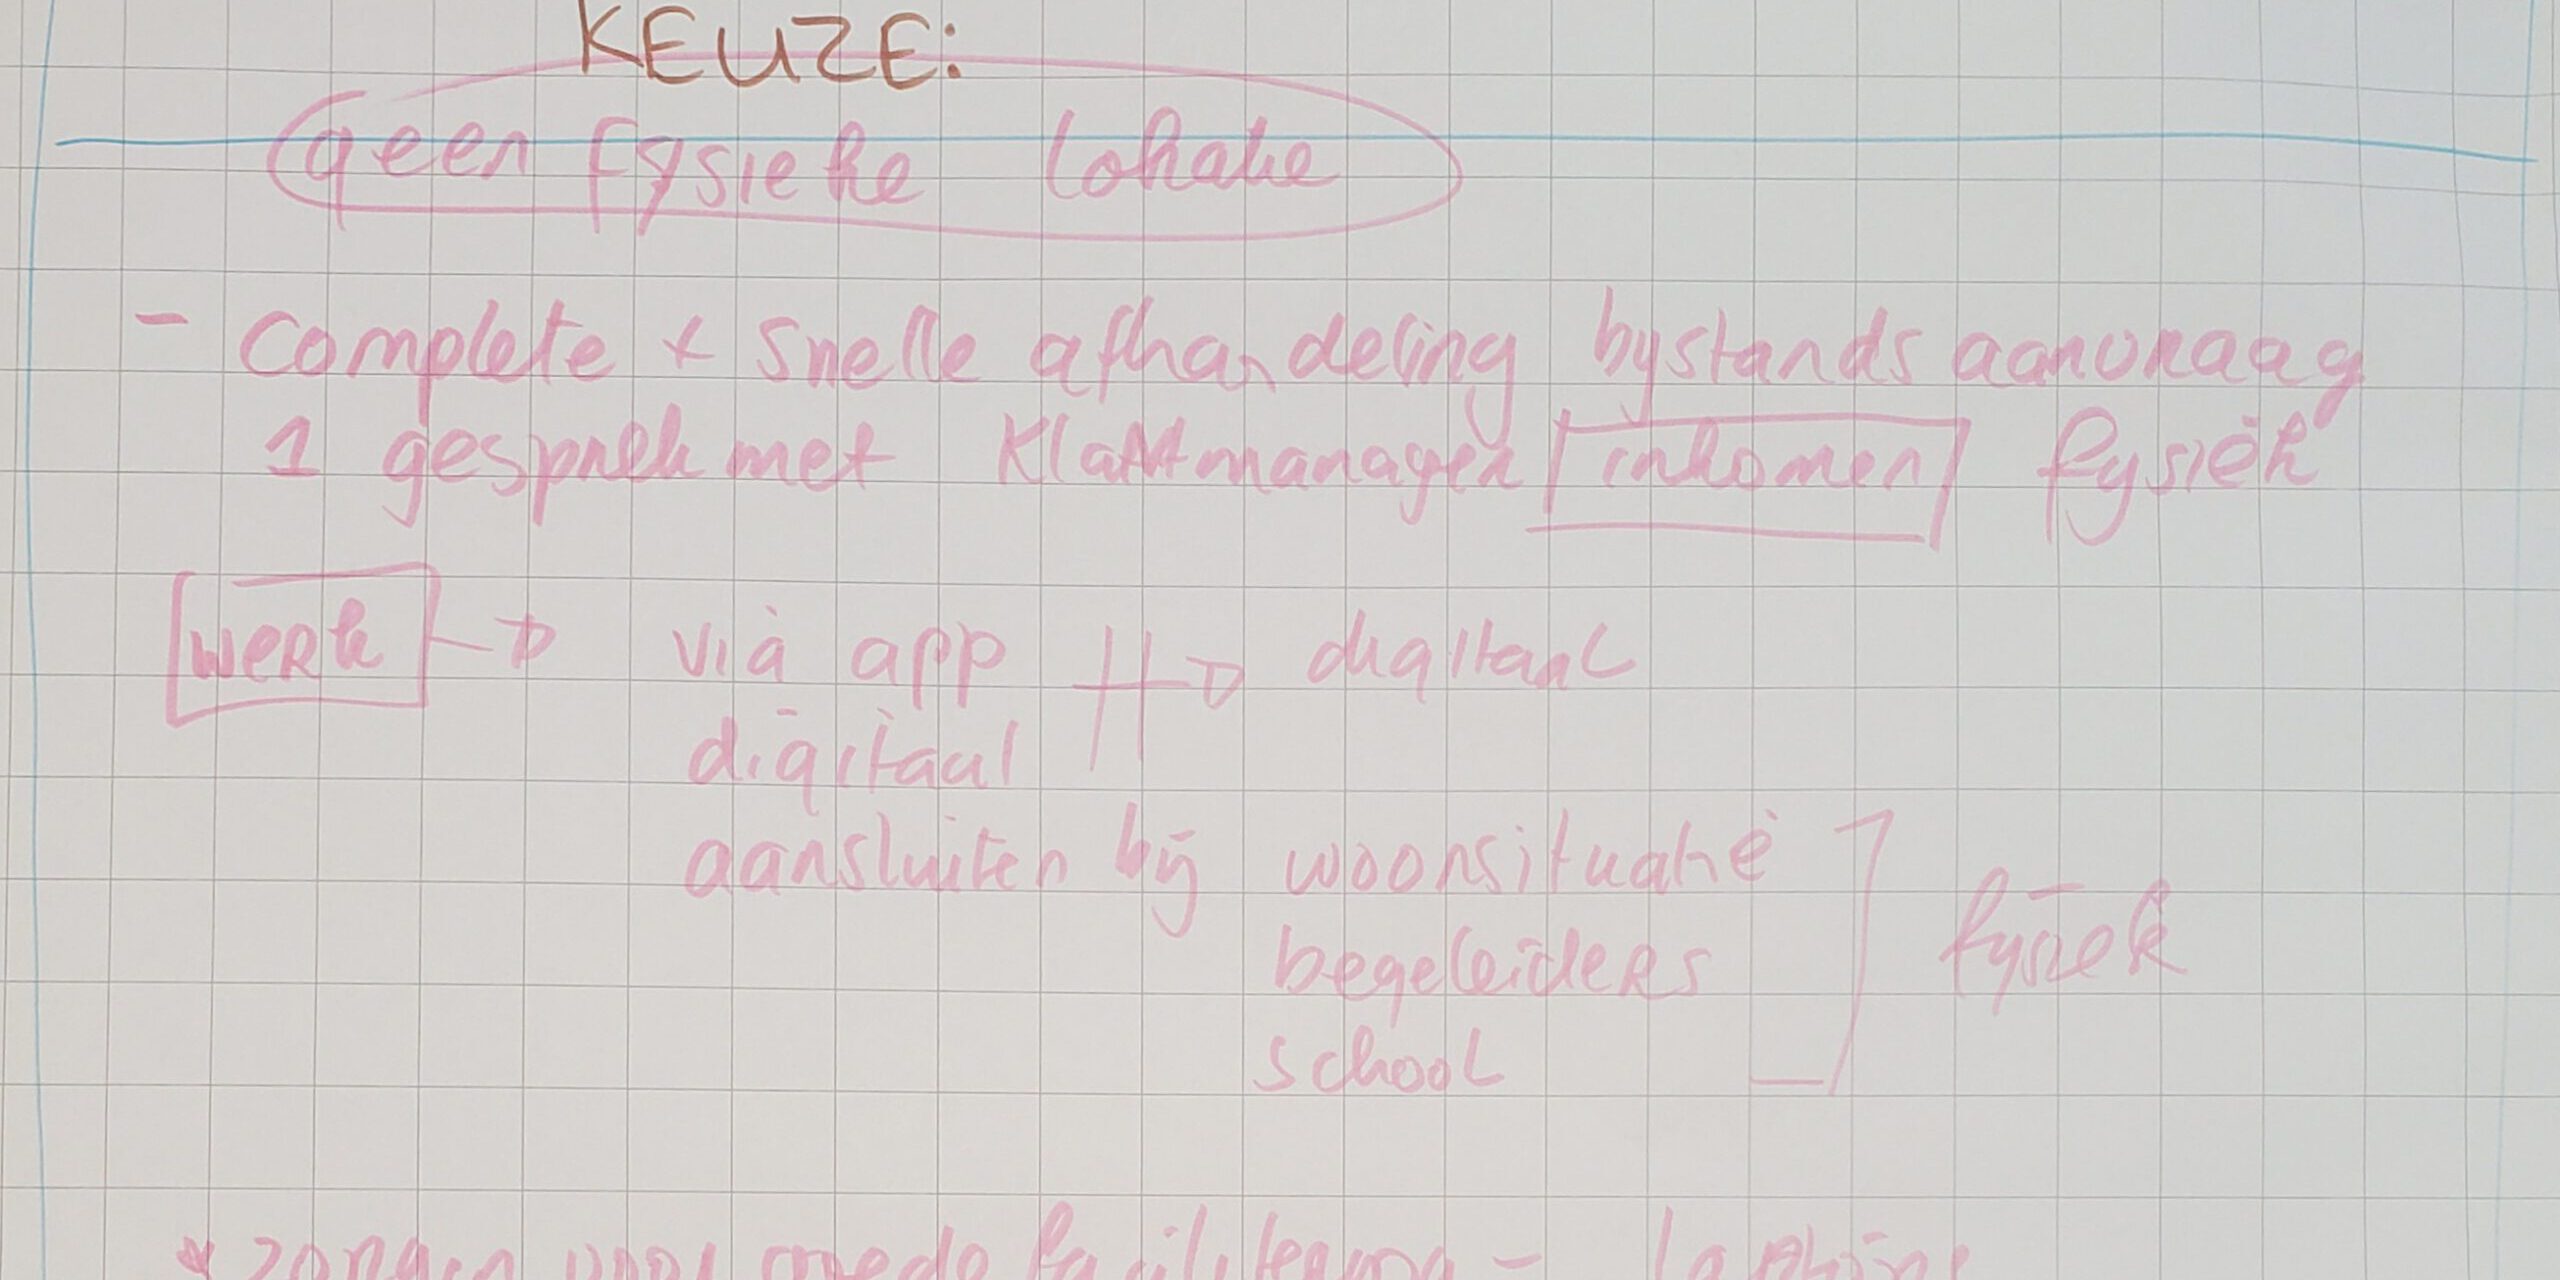 KEUZE:
geen fysieke lokatie
- complete + snelle afhandeling bijstandsaanvraag
1 gesprek met Klantmanager inkomen fysiek
werk → via app → digitaal
digitaal
aansluiten bij woonsituatie
begeleiders fysiek
school
* zorgen voor goede facilitering -